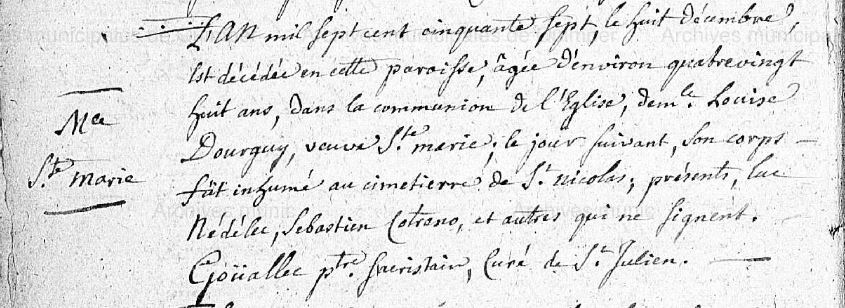 L'AN mil sept cent cinquante sept le huit décembre,
Est décédée en cette paroisse, âgée d'environ quatrevingt
huit ans, dans la communion de l'Eglise, dem.le Louise
Mce
Dourguy, veuve S.te marie; le jour suivant, son corps
S.te marie
fût inhumé au cimetierre de S.t nicolas; présents, luc
Nédélec, Sebastien Cotrono, et autres qui ne signent.
Goüallec ptre. Sacristain, Curé de S.t Julien.